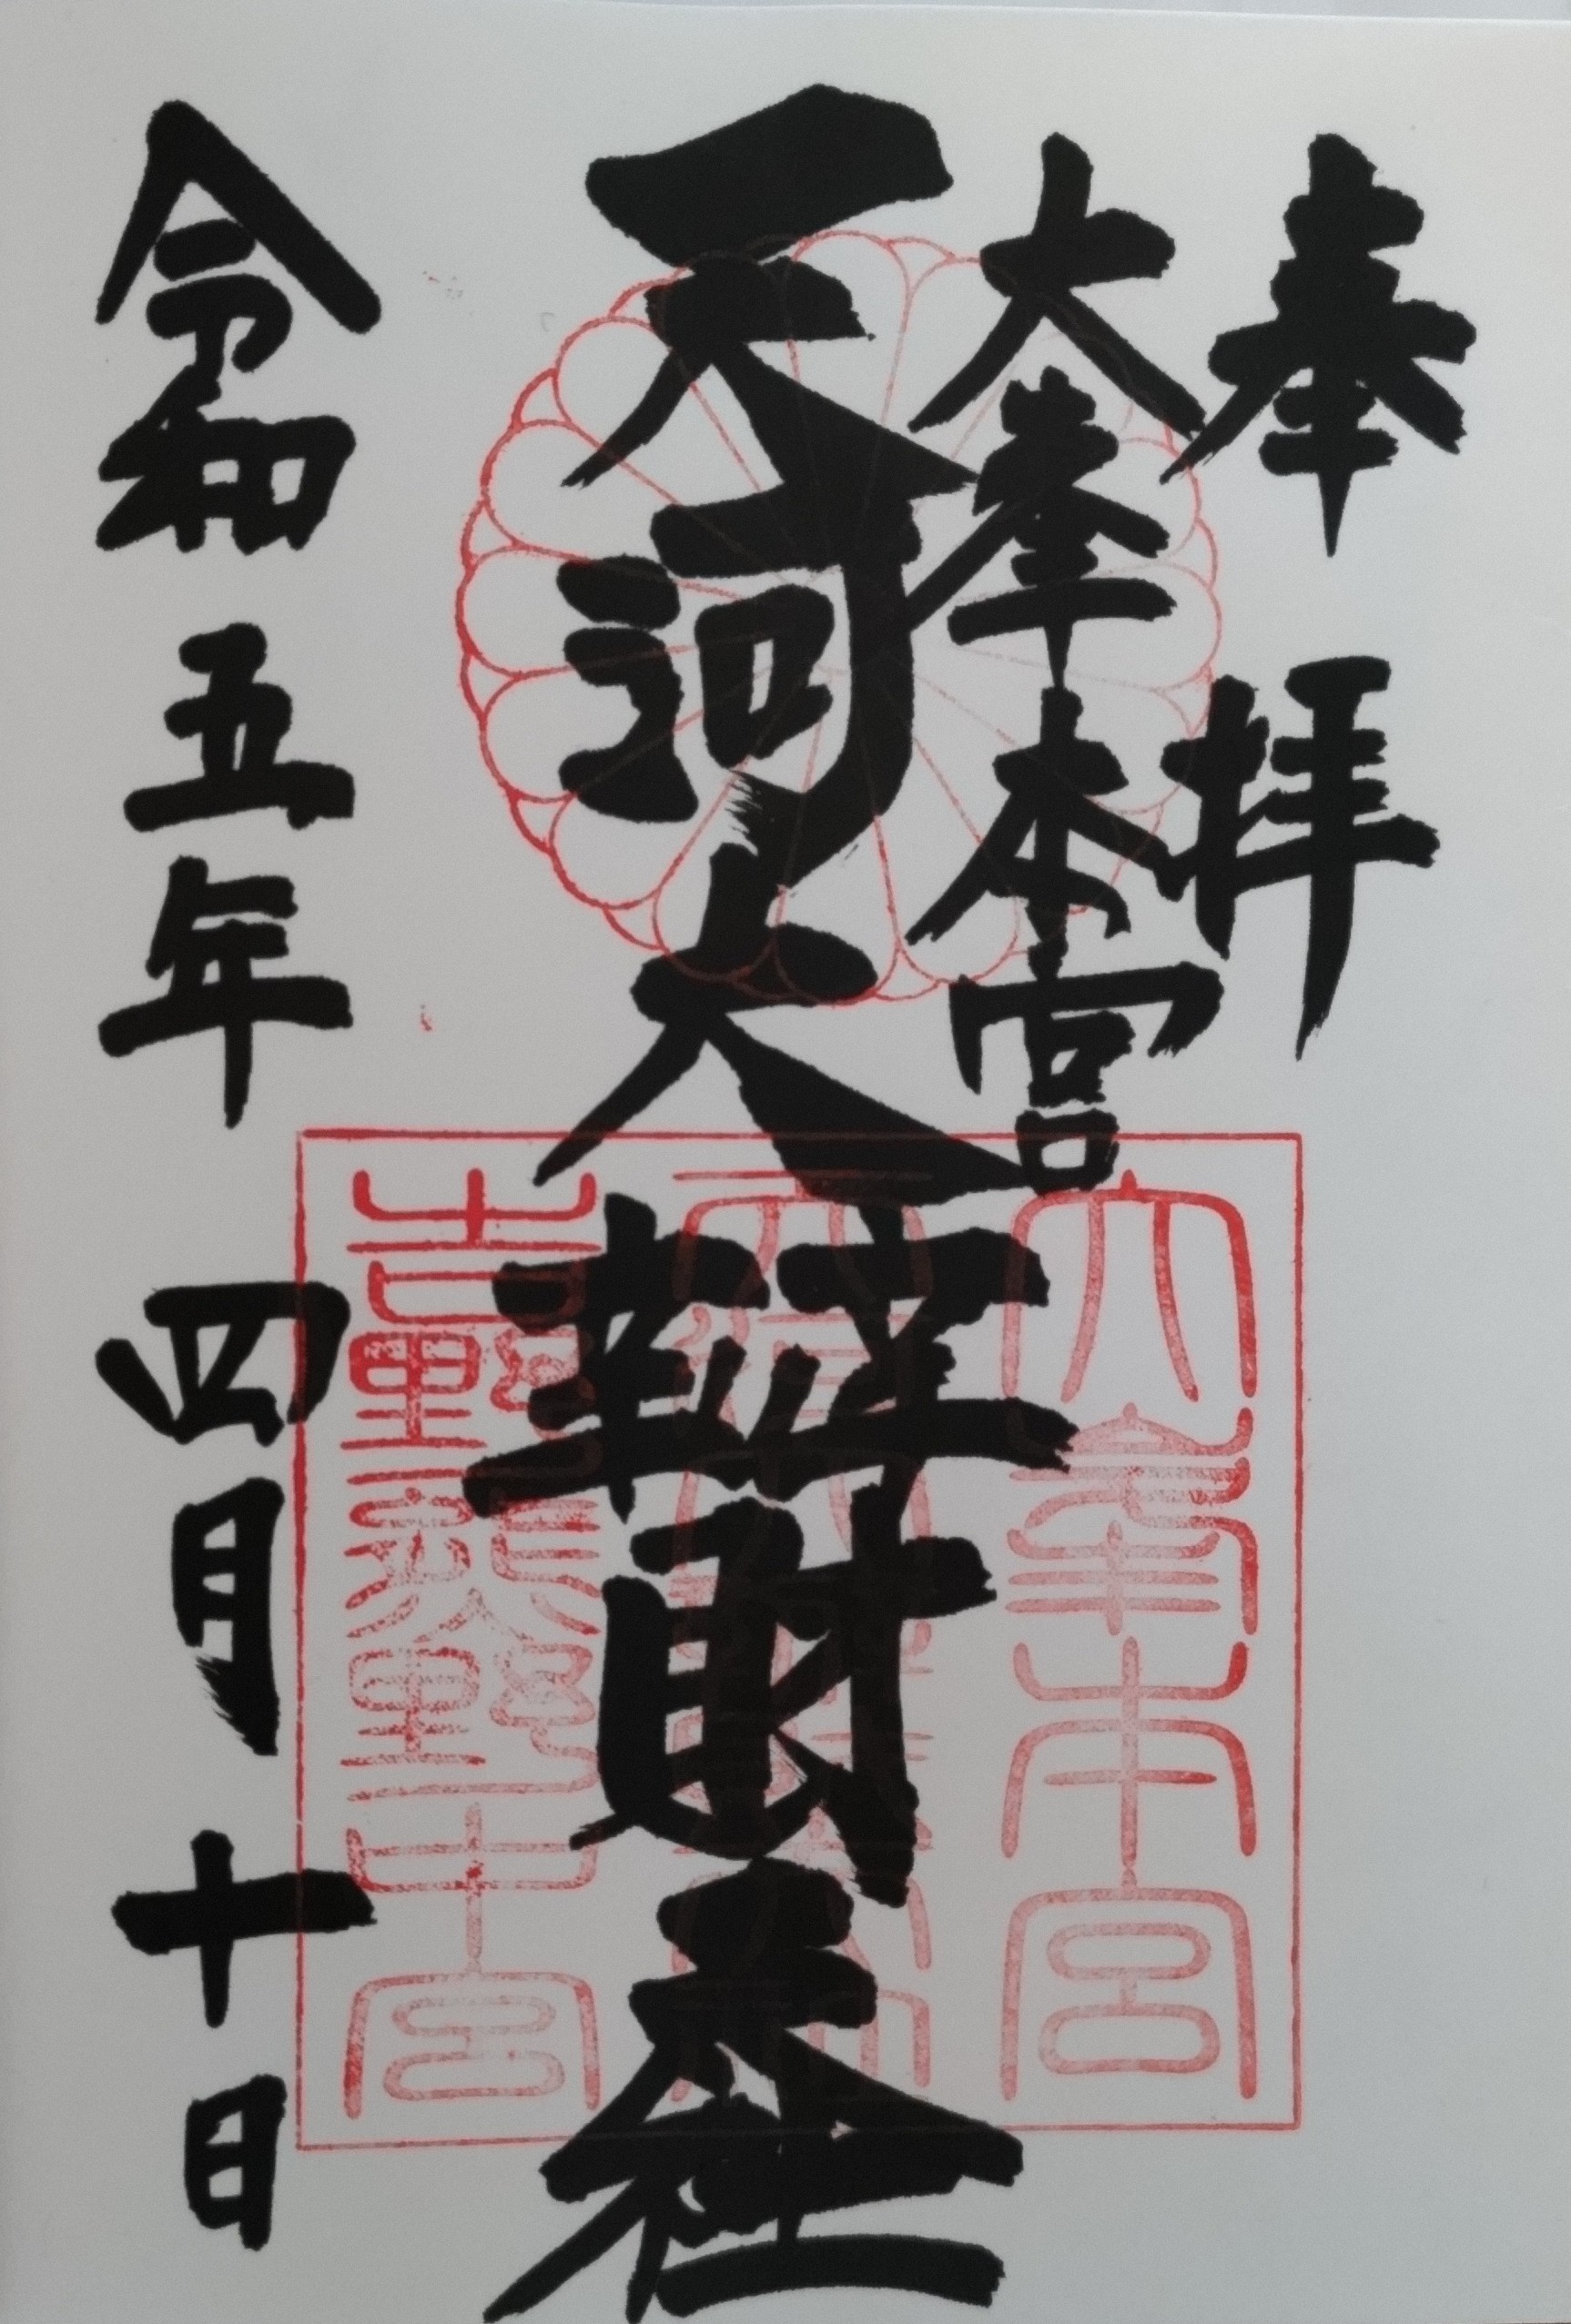 奉拝
大峯本宮
天河大辨財天社
令和五年 四月 十日
大峯本宮
吉野熊野中宮